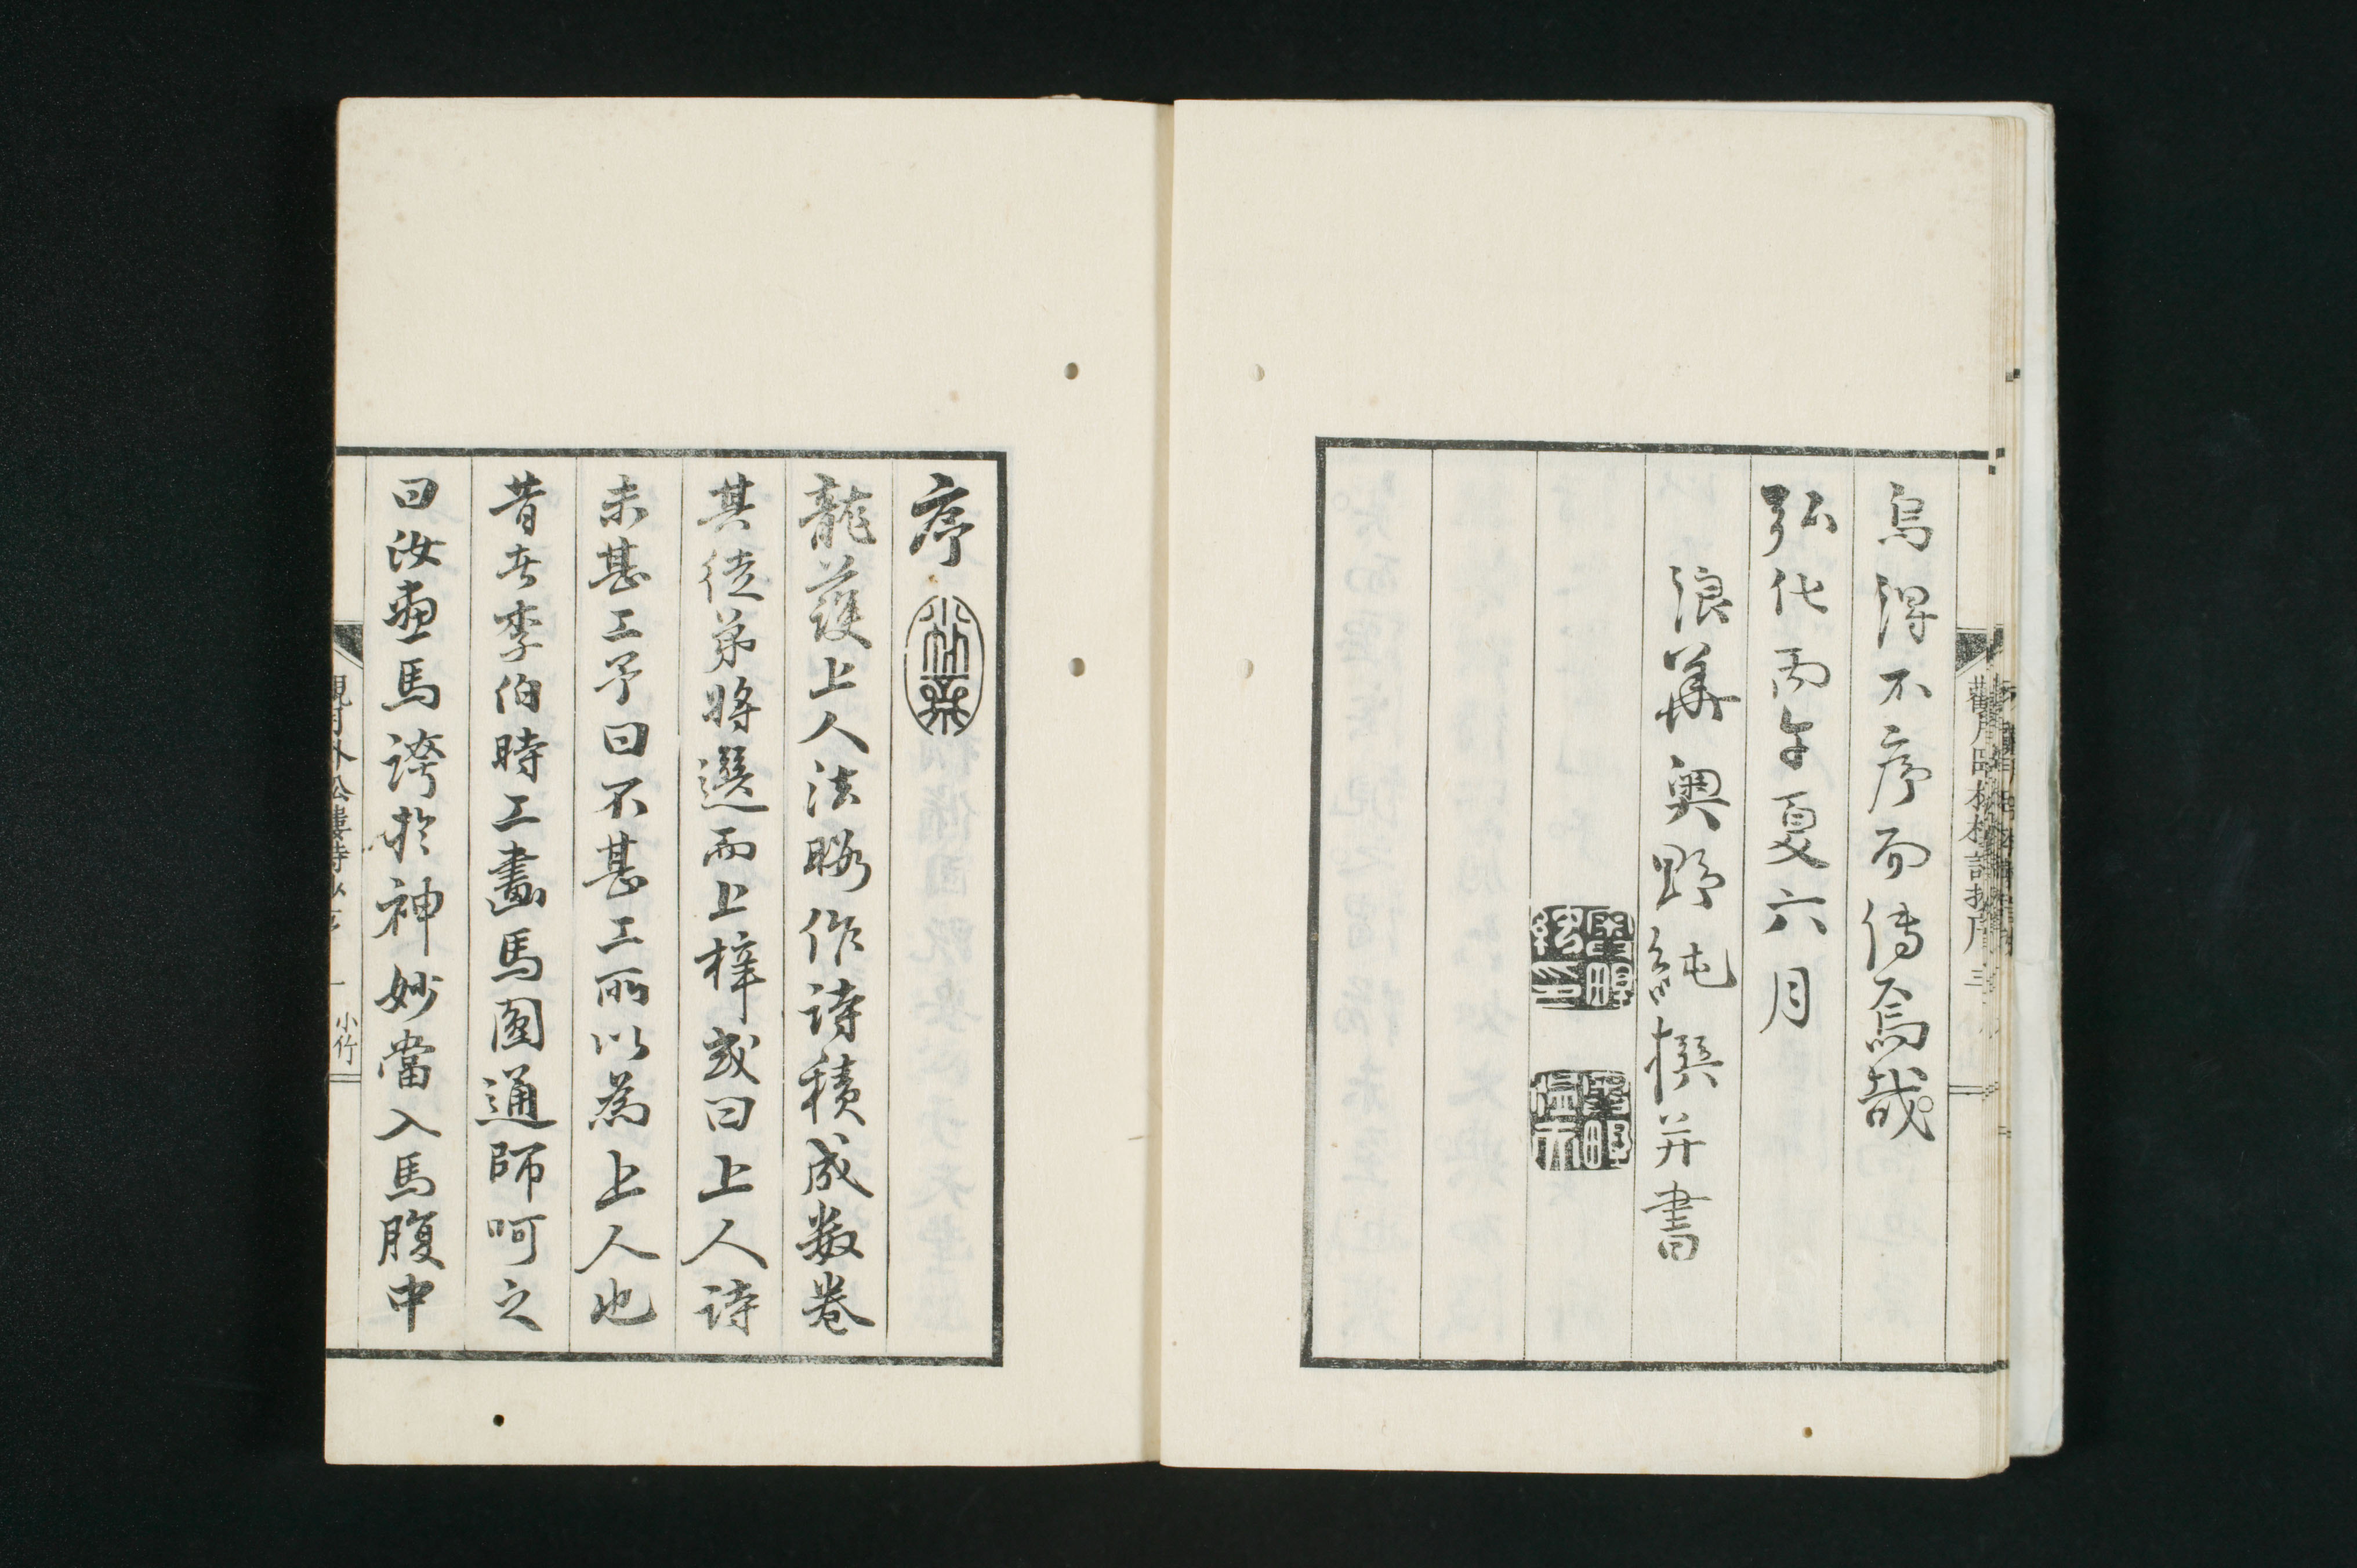 烏得不序而傳焉哉
弘化丙午夏六月
浪華奧野純撰并書
序
龍護上人法暇作詩積成數卷
其徒弟將選而上梓或曰上人詩
未甚工予曰不甚工所以為上人也
昔者李伯時工畫馬圓通師呵之
曰汝畫馬誇於神妙當入馬腹中
小竹